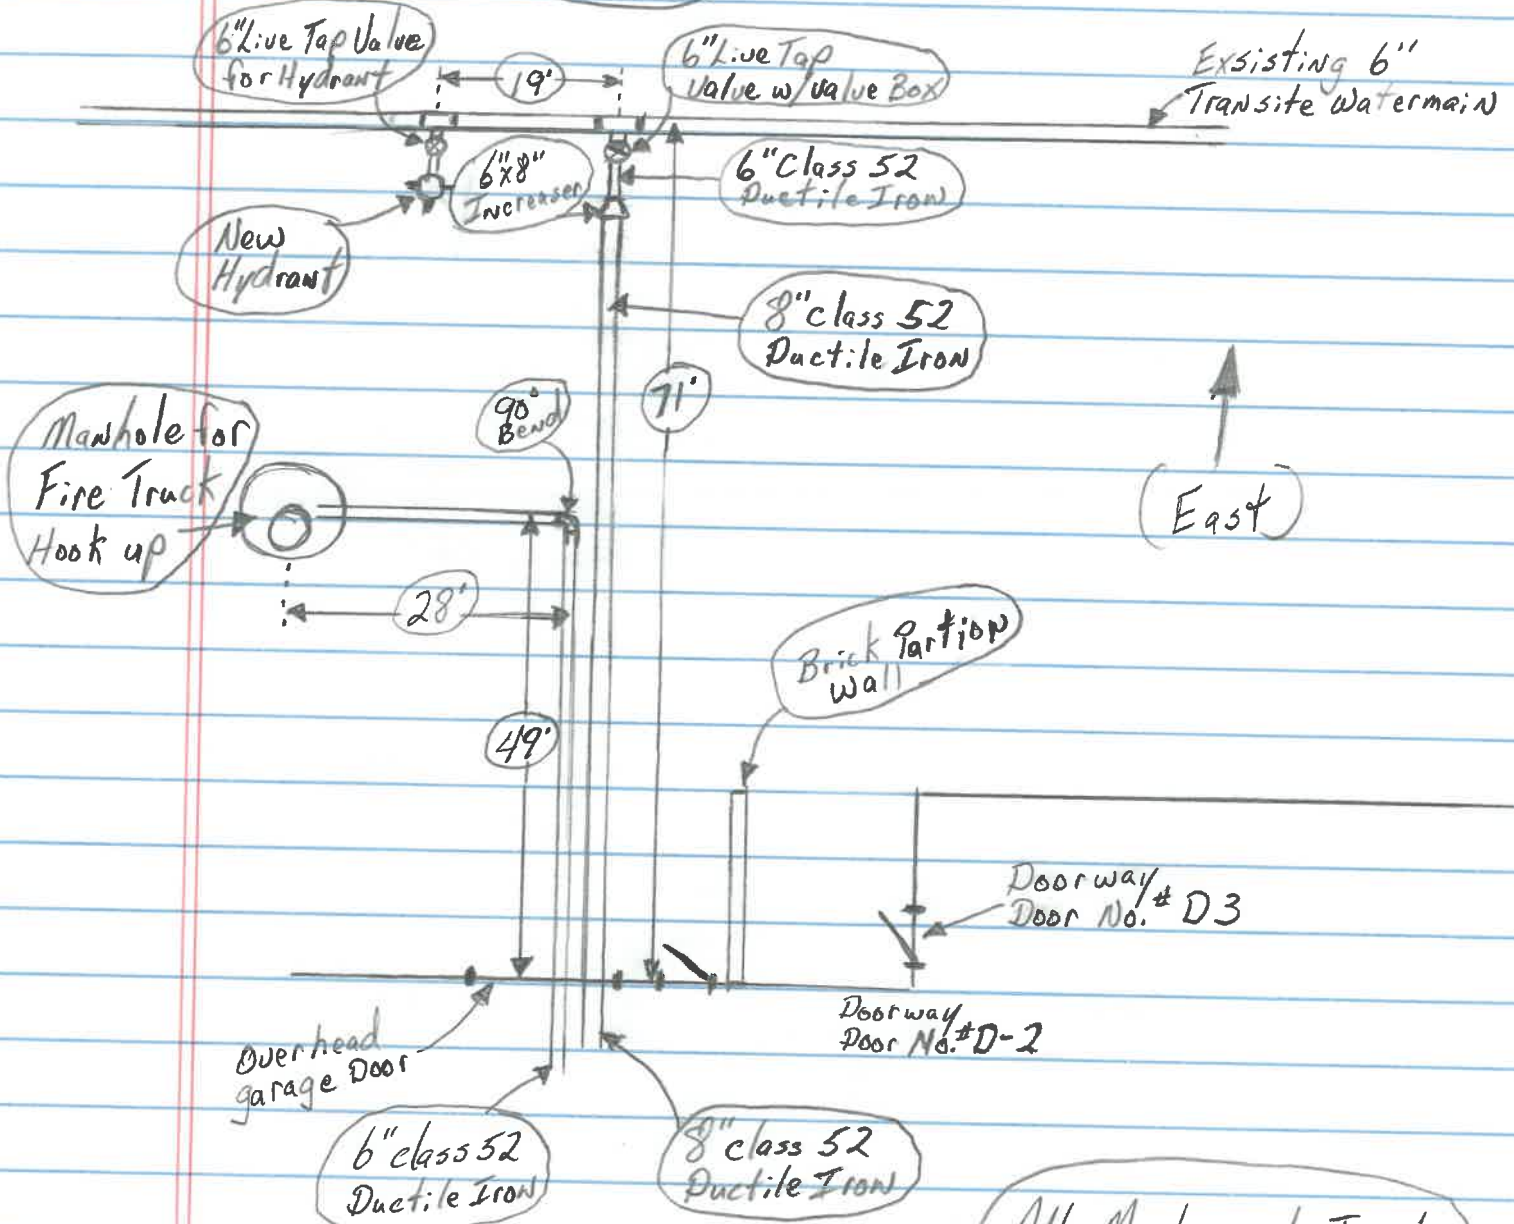 6"Live Tap Valve
for Hydrant
19'
6"Live Tap
Valve w/valve Box
Exsisting 6"
Transite Watermain
6"x8"
Increaser
6"Class 52
Ductile Iron
New
Hydrant
8"class 52
Ductile Iron
90°
Bend
71'
Manhole for
Fire Truck
Hook up
(East)
28'
Brick Partion
Wall
49'
Doorway
Door No.# D3
Doorway
Door No.#D-2
Overhead
garage Door
6"class 52
Ductile Iron
8"class 52
Ductile Iron
All